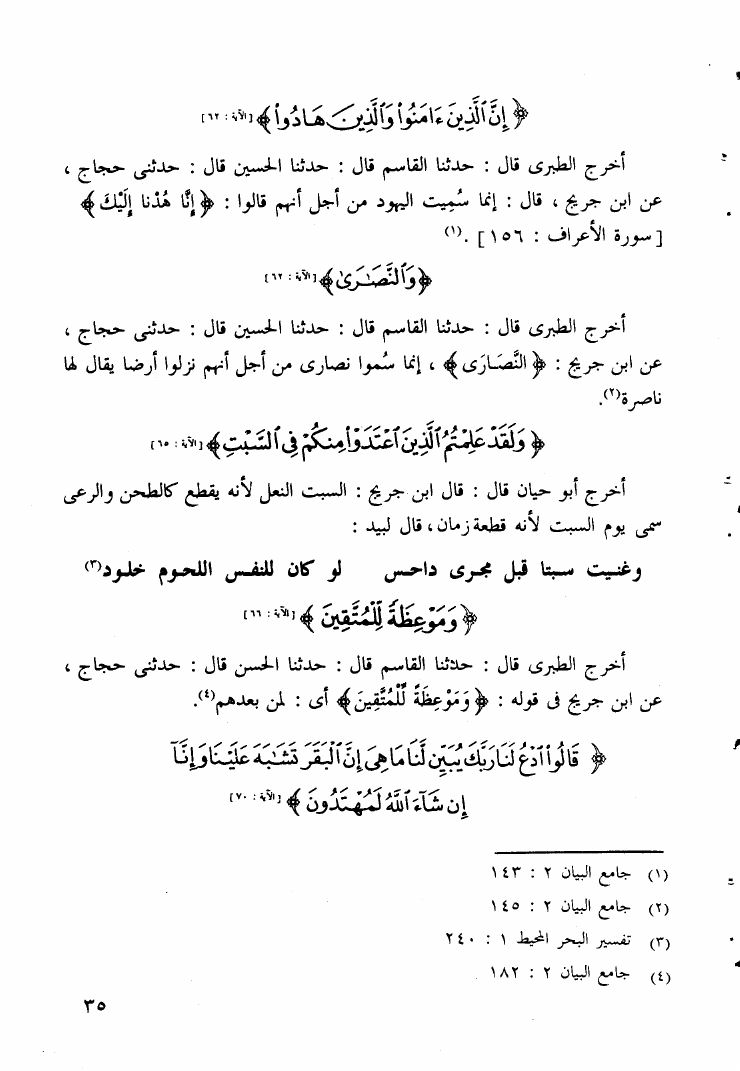 ﴿ إِنَّ ٱلَّذِينَ ءَامَنُوا۟ وَٱلَّذِينَ هَادُوا۟ ﴾ [الآية : ٦٢]
أخرج الطبرى قال : حدثنا القاسم قال : حدثنا الحسين قال : حدثنى حجاج ،
عن ابن جريج ، قال : إنما سُميت اليهود من أجل أنهم قالوا : ﴿ إِنَّا هُدْنا إِلَيْكَ ﴾
[ سورة الأعراف : ١٥٦ ] .(١)
﴿ وَٱلنَّصَـٰرَىٰ ﴾ [الآية : ٦٢]
أخرج الطبرى قال : حدثنا القاسم قال : حدثنا الحسين قال : حدثنى حجاج ،
عن ابن جريج : ﴿ النَّصَـارَى ﴾ ، إنما سُموا نصارى من أجل أنهم نزلوا أرضا يقال لها
ناصرة(٢).
﴿ وَلَقَدْ عَلِمْتُمُ ٱلَّذِينَ ٱعْتَدَوْا۟ مِنكُمْ فِى ٱلسَّبْتِ ﴾ [الآية : ٦٥]
أخرج أبو حيان قال : قال ابن جريج : السبت النعل لأنه يقطع كالطحن والرعى
سمى يوم السبت لأنه قطعة زمان ، قال لبيد :
وغنـيت سـبتا قبل مجـرى داحـس لو كان للنفـس اللحـوم خلـود(٣)
﴿ وَمَوْعِظَةً لِّلْمُتَّقِينَ ﴾ [الآية : ٦٦]
أخرج الطبرى قال : حدثنا القاسم قال : حدثنا الحسن قال : حدثنى حجاج ،
عن ابن جريج فى قوله : ﴿ وَمَوْعِظَةً لِّلْمُتَّقِينَ ﴾ أى : لمن بعدهم(٤).
﴿ قَالُوا۟ ٱدْعُ لَنَا رَبَّكَ يُبَيِّن لَّنَا مَا هِىَ إِنَّ ٱلْبَقَرَ تَشَـٰبَهَ عَلَيْنَا وَإِنَّآ
إِن شَآءَ ٱللَّهُ لَمُهْتَدُونَ ﴾ [الآية : ٧٠]
(١) جامع البيان ٢ : ١٤٣
(٢) جامع البيان ٢ : ١٤٥
(٣) تفسير البحر المحيط ١ : ٢٤٠
(٤) جامع البيان ٢ : ١٨٢
٣٥